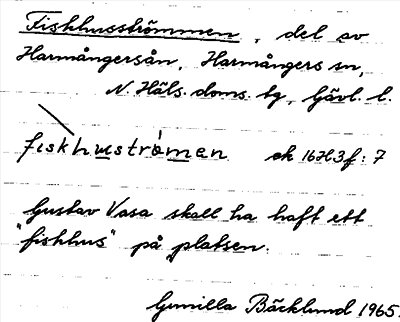 Fiskhusströmmen, del av
Harmångersån, Harmångers sn,
N. Häls. doms. bg, Gävl. l.
fiskhuströmen ek 16H3f:7
Gustav Vasa skall ha haft ett
"fiskhus" på platsen.
Gunilla Bäcklund 1965.